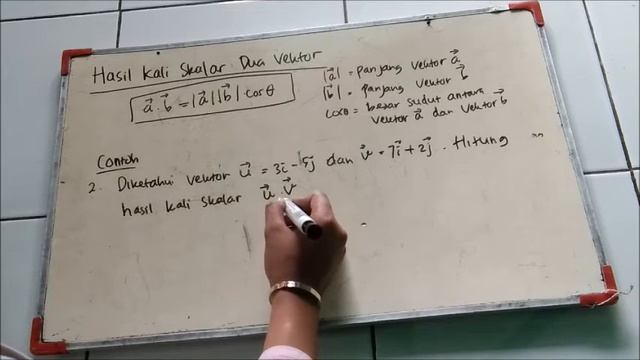 Hasil Kali Skalar Dua Vektor
a⃗ . b⃗ = |a⃗| |b⃗| cos θ
|a⃗| = panjang vektor a⃗
|b⃗| = panjang vektor b⃗
cos θ = besar sudut antara
vektor a⃗ dan vektor b⃗
Contoh
2. Diketahui vektor u⃗ = 3i⃗ - 5j⃗ dan v⃗ = 7i⃗ + 2j⃗ . Hitung
hasil kali skalar u⃗ . v⃗